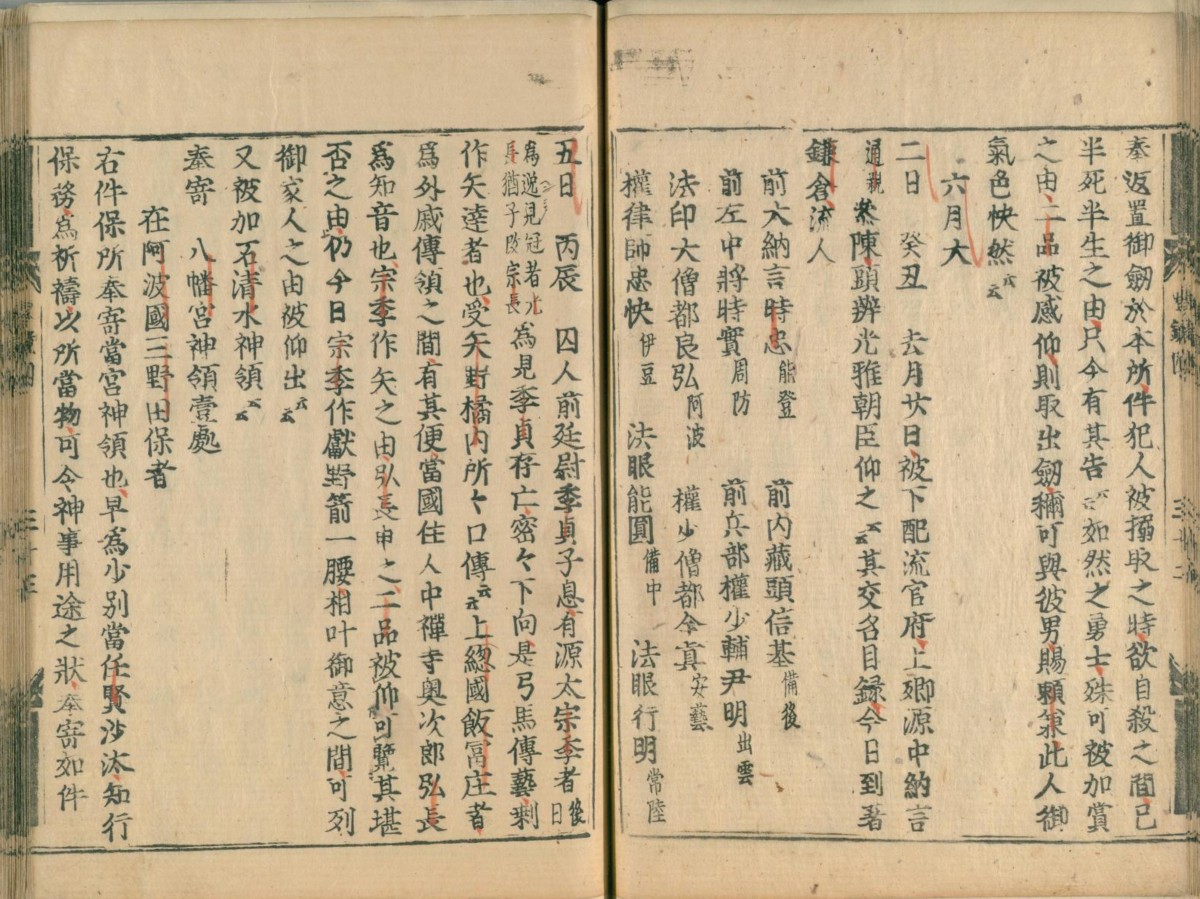 奉返置御劔於本所、件犯人被搦取之時、欲自殺之間、已
半死半生之由、只今有其告云云如然之勇士、殊可被加賞
之由、二品被感仰、則取出劔、稱可與彼男、賜頼兼、此人御
氣色快然云云
六月大
二日　癸丑　去月廿日、被下配流官府、上卿源中納言
通親参陳、頭辨光雅朝臣仰之云云其交名目録、今日到著
鎌倉、流人
前大納言時忠能登　前内藏頭信基備後
前左中將時實周防　前兵部權少輔尹明出雲
法印大僧都良弘阿波　權少僧都全真安藝
權律師忠快伊豆　法眼能圓備中　法眼行明常陸
五日　丙辰　囚人前廷尉季貞子息、有源太宗季者後日
為逸見冠者光長猶子改宗長為見季貞存亡、密々下向、是弓馬傳藝、剰
作矢達者也、受矢野橘内所々口傳云云上総國飯冨庄者
為外戚傳領之間、有其便、當國住人中禪寺奥次郎弘長
為知音也、宗季作矢之由、弘長申之、二品被仰可覽其堪
否之由、仍今日宗季作獻野箭一腰、相叶御意之間、可列
御家人之由被仰出云云
又被加石清水神領云云
奉寄　八幡宮神領壹處
在阿波國三野田保者
右件保、所奉寄當宮神領也、早為少別當任賢沙汰、知行
保務、為祈禱、以所當物、可令神事用途之狀、奉寄如件